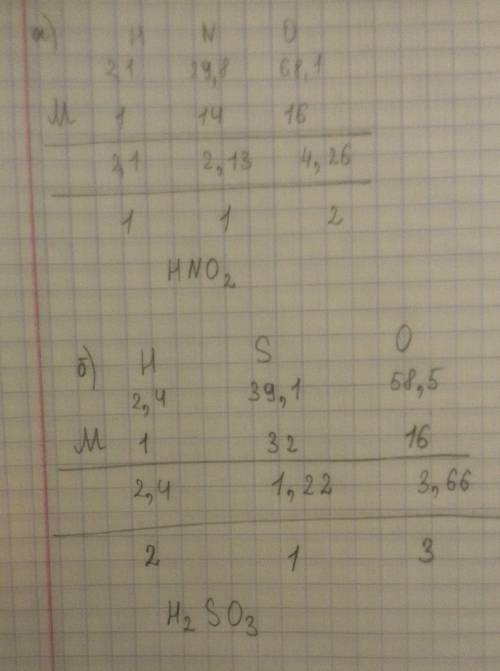 а) H N O
2,1 29,8 68,1
M 1 14 16
2,1 2,13 4,26
1 1 2
HNO₂
б) H S O
2,4 39,1 58,5
M 1 32 16
2,4 1,22 3,66
2 1 3
H₂SO₃